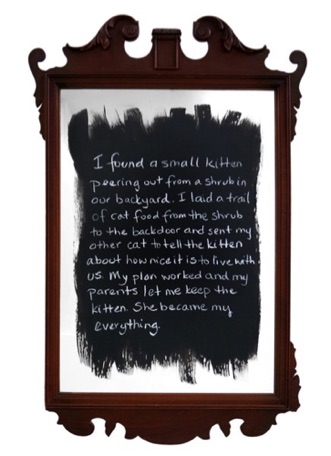 I found a small kitten
peering out from a shrub in
our backyard. I laid a trail
of cat food from the shrub
to the backdoor and sent my
other cat to tell the kitten
about how nice it is to live with
us. My plan worked and my
parents let me keep the
kitten. She became my
everything.